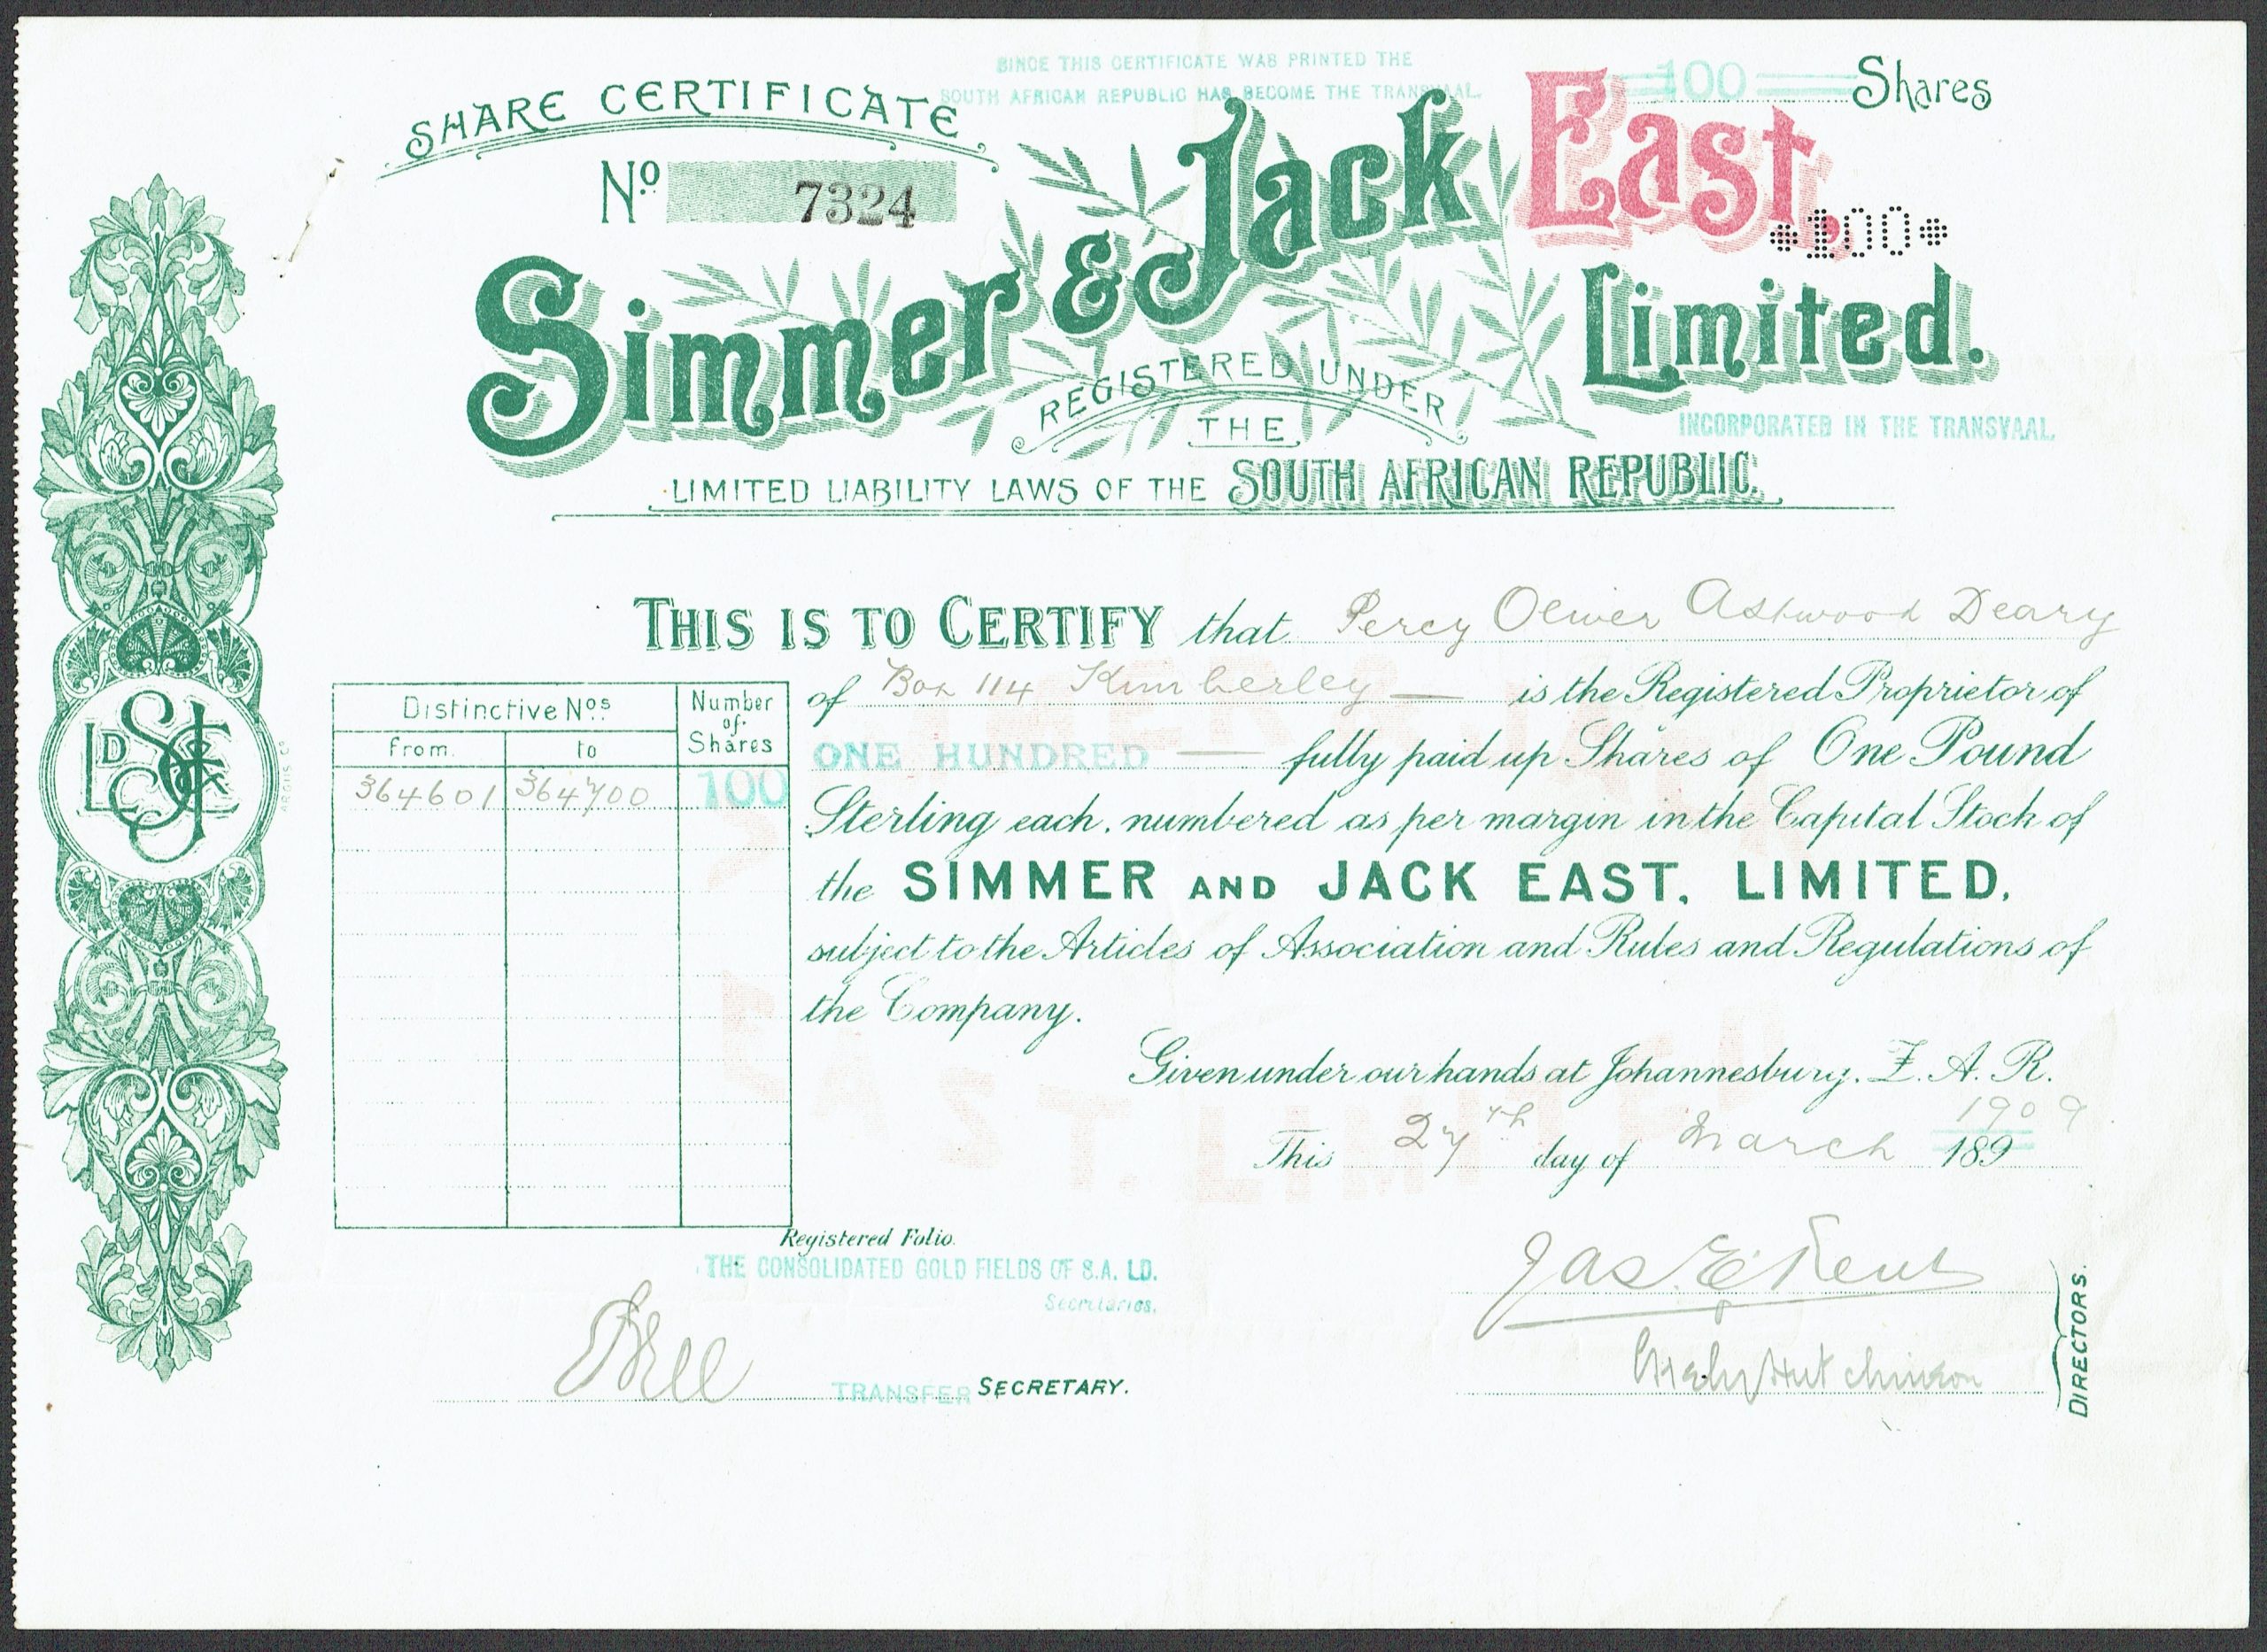 SINCE THIS CERTIFICATE WAS PRINTED THE
SOUTH AFRICAN REPUBLIC HAS BECOME THE TRANSVAAL.
100 Shares
SHARE CERTIFICATE
No 7324
Simmer & Jack East
*100*
Limited.
REGISTERED UNDER
THE
INCORPORATED IN THE TRANSVAAL.
LIMITED LIABILITY LAWS OF THE SOUTH AFRICAN REPUBLIC.
THIS IS TO CERTIFY that Percy Oliver Ashwood Deary
of Box 114 Kimberley — is the Registered Proprietor of
ONE HUNDRED — fully paid up Shares of One Pound
Sterling each, numbered as per margin in the Capital Stock of
the SIMMER AND JACK EAST, LIMITED,
subject to the Articles of Association and Rules and Regulations of
the Company.
Distinctive Nos. Number of Shares
from. to
364601 364700 100
ARGUS Co
Given under our hands at Johannesburg. Z. A. R.
This 27th day of March 1909
189
Registered Folio.
THE CONSOLIDATED GOLD FIELDS OF S.A. LD.
Secretaries.
TRANSFER SECRETARY.
Jas. E. Kent
Hutchinson
DIRECTORS.